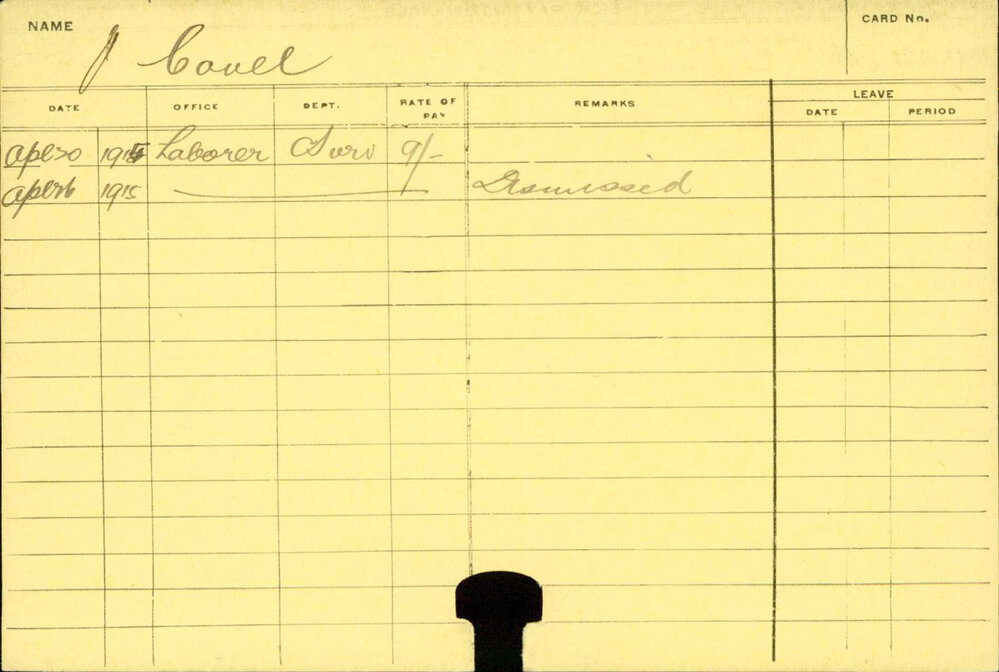 NAME CARD No.
J Covel
LEAVE
DATE OFFICE DEPT. RATE OF PAY REMARKS DATE PERIOD
1915 Laborer Surv 9/-
1915 Dismissed